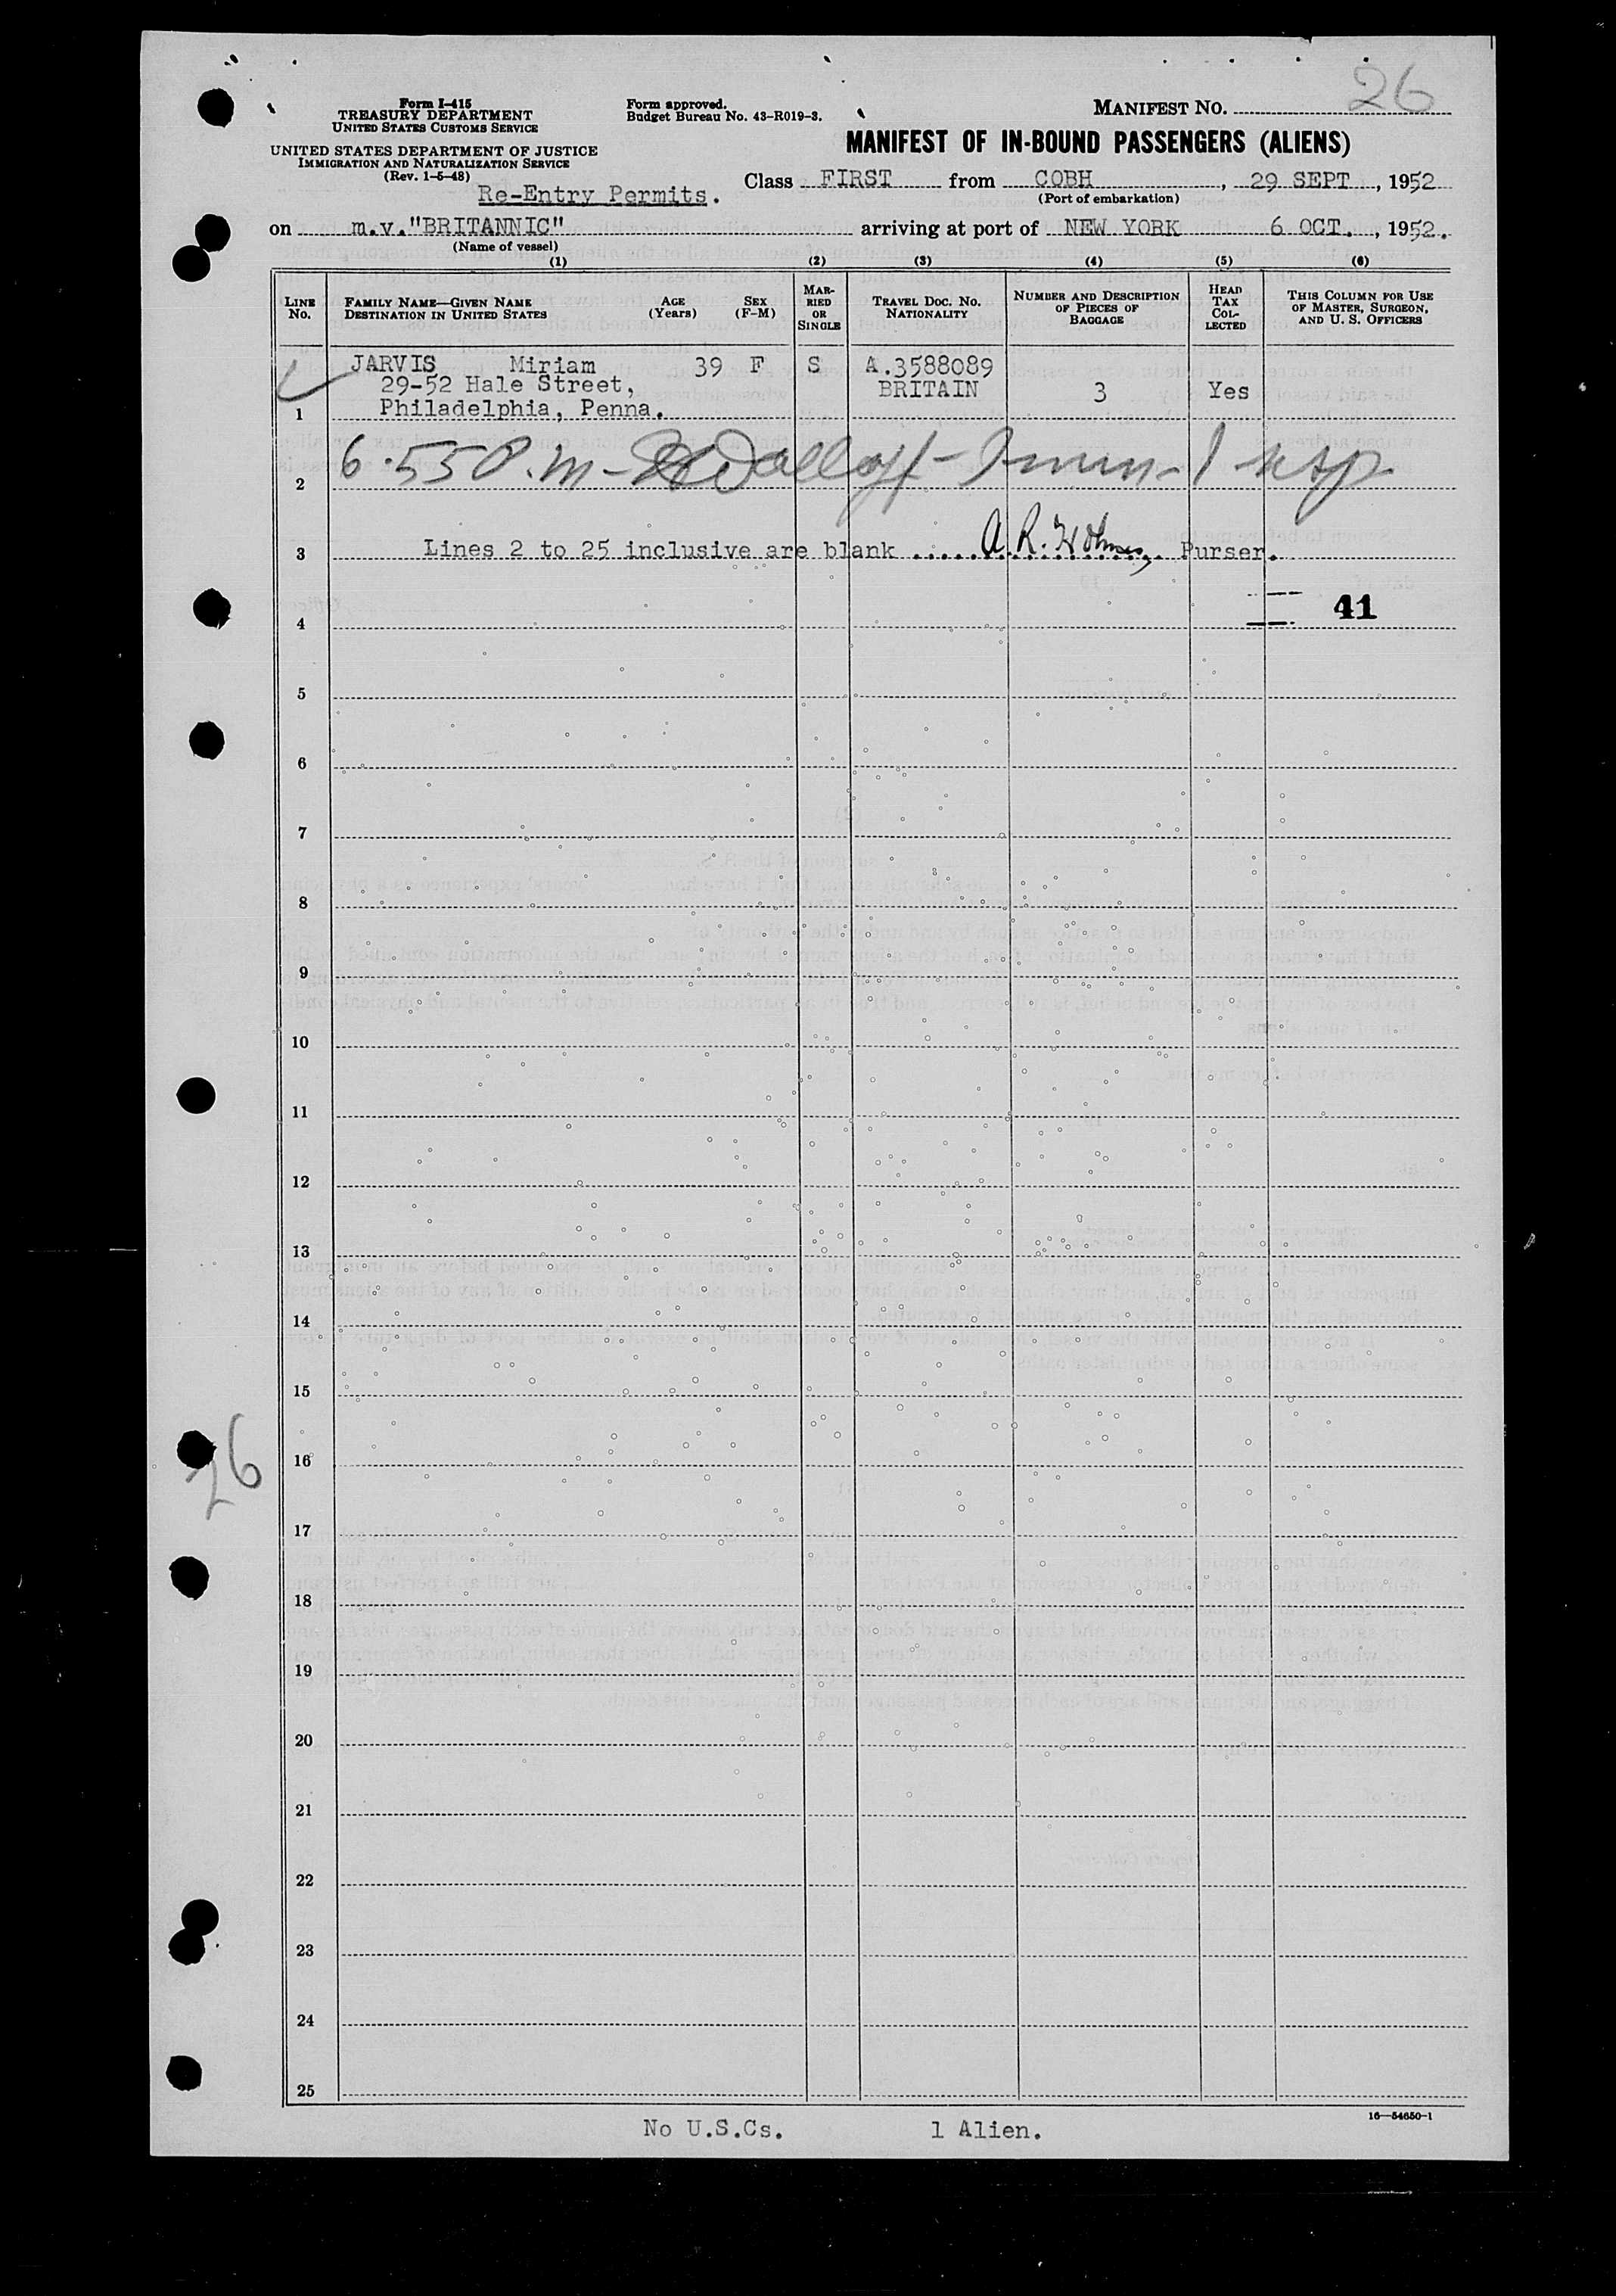 Form I-415
TREASURY DEPARTMENT
UNITED STATES CUSTOMS SERVICE
UNITED STATES DEPARTMENT OF JUSTICE
IMMIGRATION AND NATURALIZATION SERVICE
(Rev. 1-5-48)
Form approved.
Budget Bureau No. 43-R019-3.
MANIFEST NO. 26
MANIFEST OF IN-BOUND PASSENGERS (ALIENS)
Re-Entry Permits.
Class FIRST from COBH, 29 SEPT, 1952
(Port of embarkation)
on m.v."BRITANNIC" arriving at port of NEW YORK 6 OCT., 1952.
(Name of vessel)
(1) (2) (3) (4) (5) (6)
LINE No. FAMILY NAME—GIVEN NAME DESTINATION IN UNITED STATES AGE (Years) SEX (F-M) MARRIED OR SINGLE TRAVEL DOC. NO. NATIONALITY NUMBER AND DESCRIPTION OF PIECES OF BAGGAGE HEAD TAX COLLECTED THIS COLUMN FOR USE OF MASTER, SURGEON, AND U. S. OFFICERS
JARVIS Miriam 39 F S A.3588089
29-52 Hale Street, BRITAIN 3 Yes
1 Philadelphia, Penna.
2 6.55 P.m-
3 Lines 2 to 25 inclusive are blank ..... A. R. Holmes Purser.
41
4
5
6
7
8
9
10
11
12
13
14
15
16
26
17
18
19
20
21
22
23
24
25
16—54650-1
No U.S.Cs. 1 Alien.